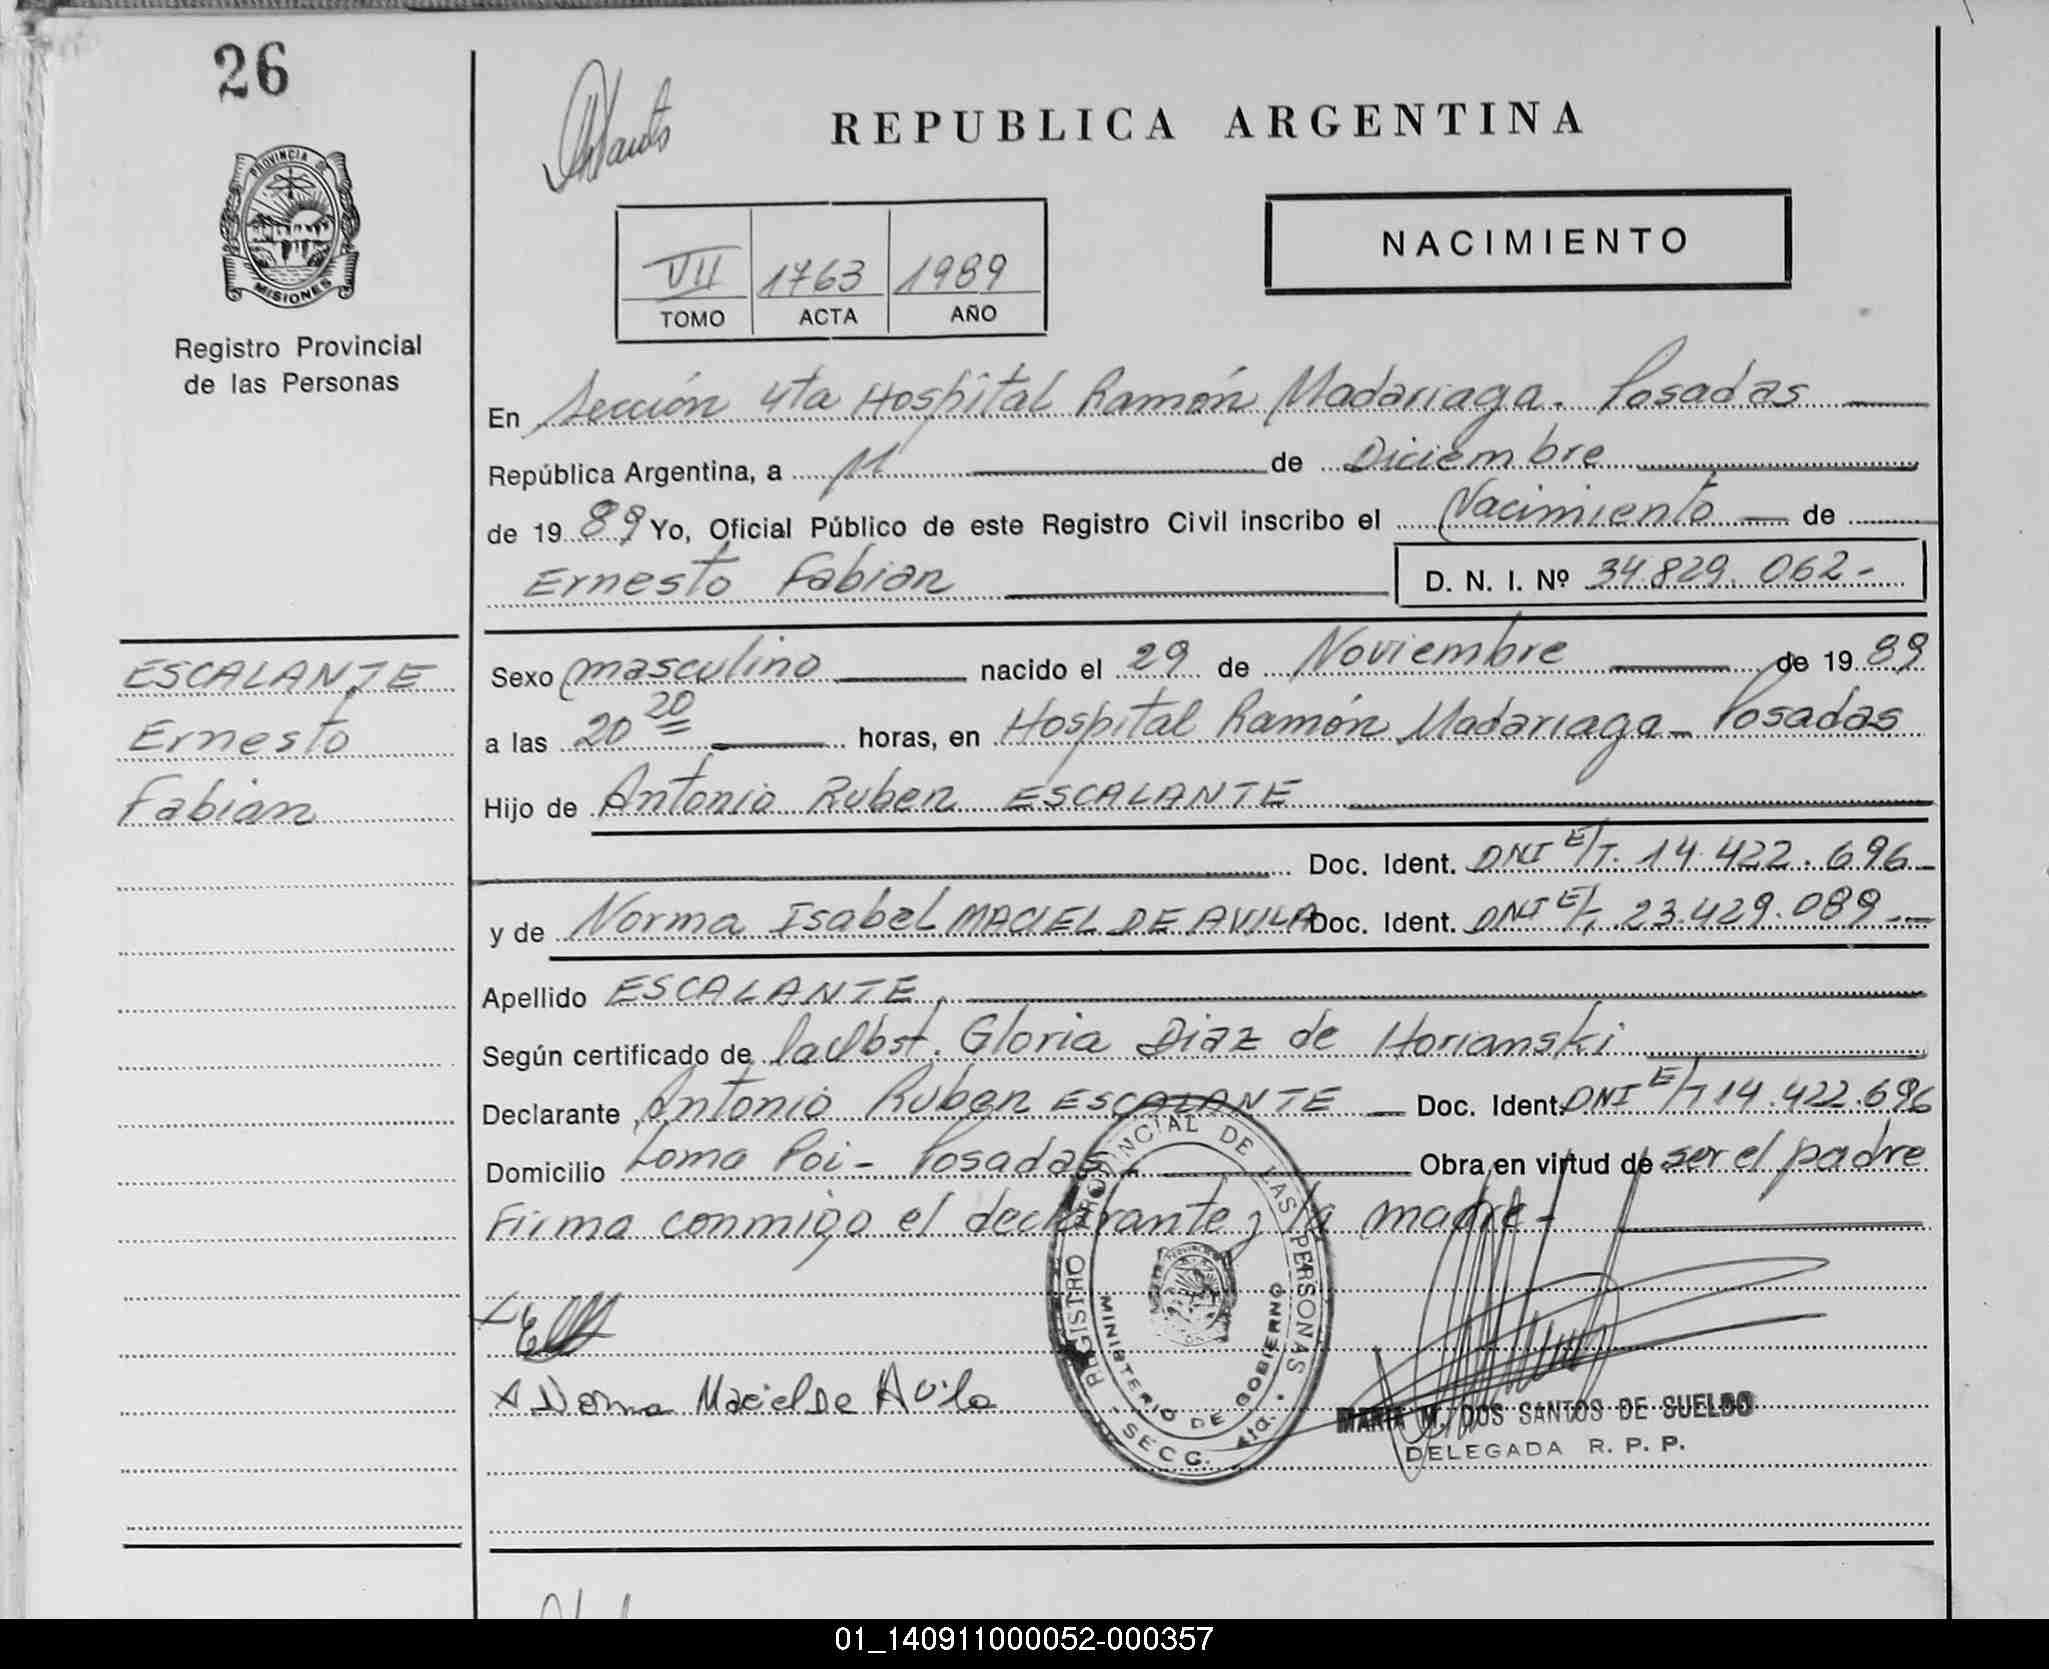 26
PROVINCIA DE
MISIONES
Registro Provincial
de las Personas
REPUBLICA ARGENTINA
NACIMIENTO
VII 1763 1989
TOMO ACTA AÑO
En Sección 4ta Hospital Ramón Madariaga. Posadas
República Argentina, a 11 de Diciembre
de 1989 Yo, Oficial Público de este Registro Civil inscribo el Nacimiento de
Ernesto Fabian D. N. I. Nº 34.829.062-
ESCALANTE
Ernesto
Fabian
Sexo masculino nacido el 29 de Noviembre de 1989
a las 20 20 horas, en Hospital Ramón Madariaga - Posadas
Hijo de Antonio Ruben ESCALANTE
Doc. Ident. DNI E/T. 14.422.696-
y de Norma Isabel MACIEL DE AVILA Doc. Ident. DNI E/T 23.429.089.-
Apellido ESCALANTE
Según certificado de la Obst. Gloria Diaz de Horianski
Declarante Antonio Ruben ESCALANTE Doc. Ident. DNI E/T 14.422.696
Domicilio Loma Poi - Posadas Obra en virtud de ser el padre
Firma conmigo el declarante y la madre-
Norma Maciel De Avila
REGISTRO PROVINCIAL DE LAS PERSONAS
MINISTERIO DE GOBIERNO
SECC. 4ta.
MARIA M. DOS SANTOS DE SUELDO
DELEGADA R. P. P.
01_140911000052-000357